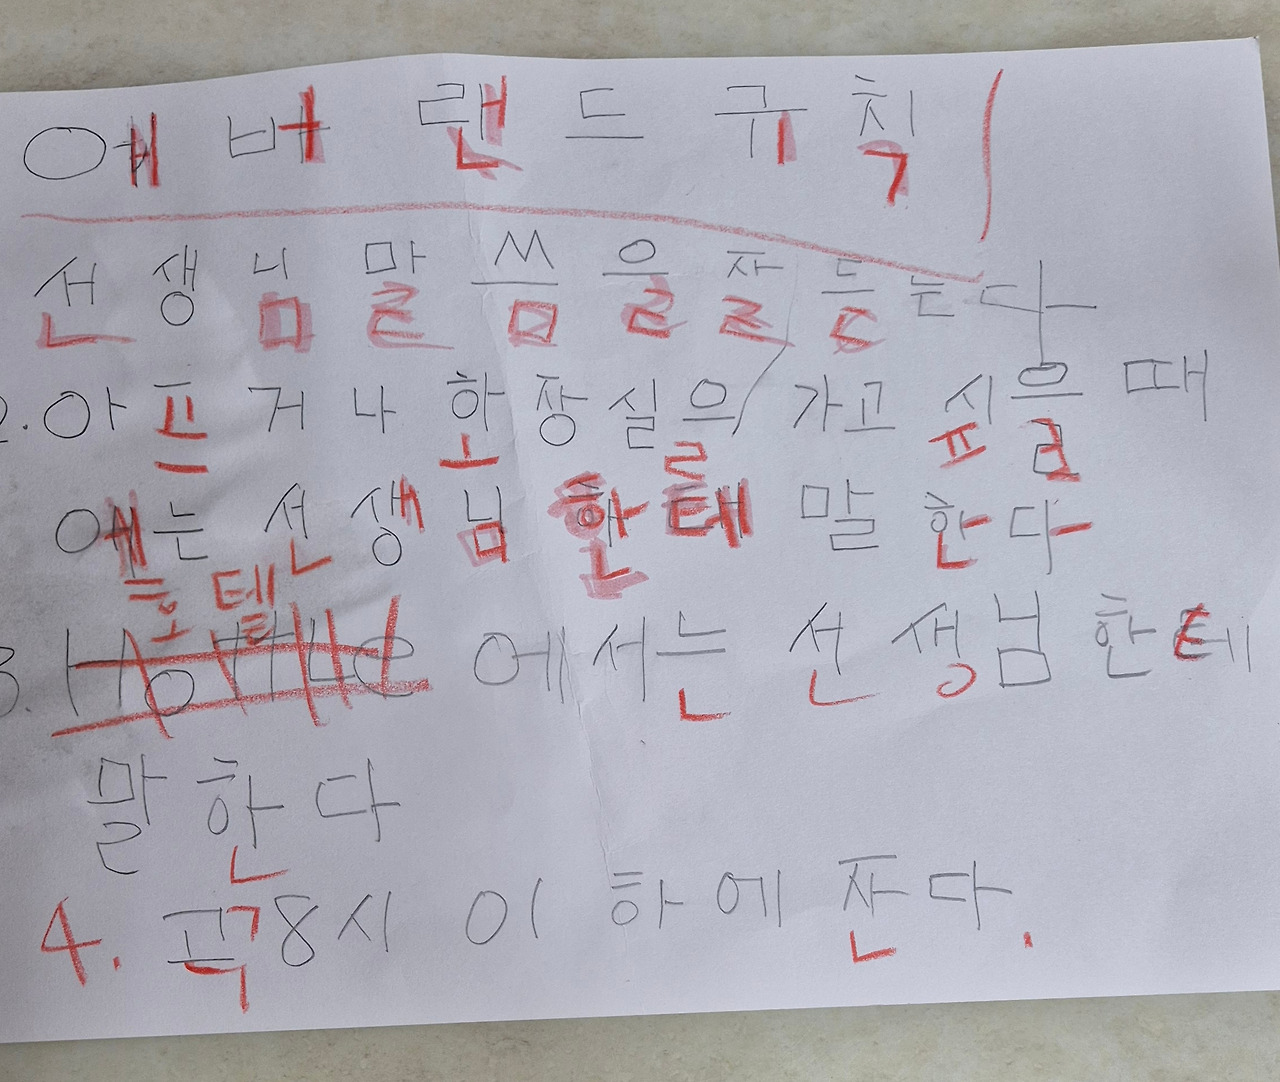 에버랜드 규칙
선생님 말씀을 잘 듣는다
2. 아프거나 화장실을 가고 싶을 때
에는 선생님 한테 말한다
호텔
3. Hotle 에서는 선생님 한테
말한다
4. 꼭 8시 이하에 잔다.